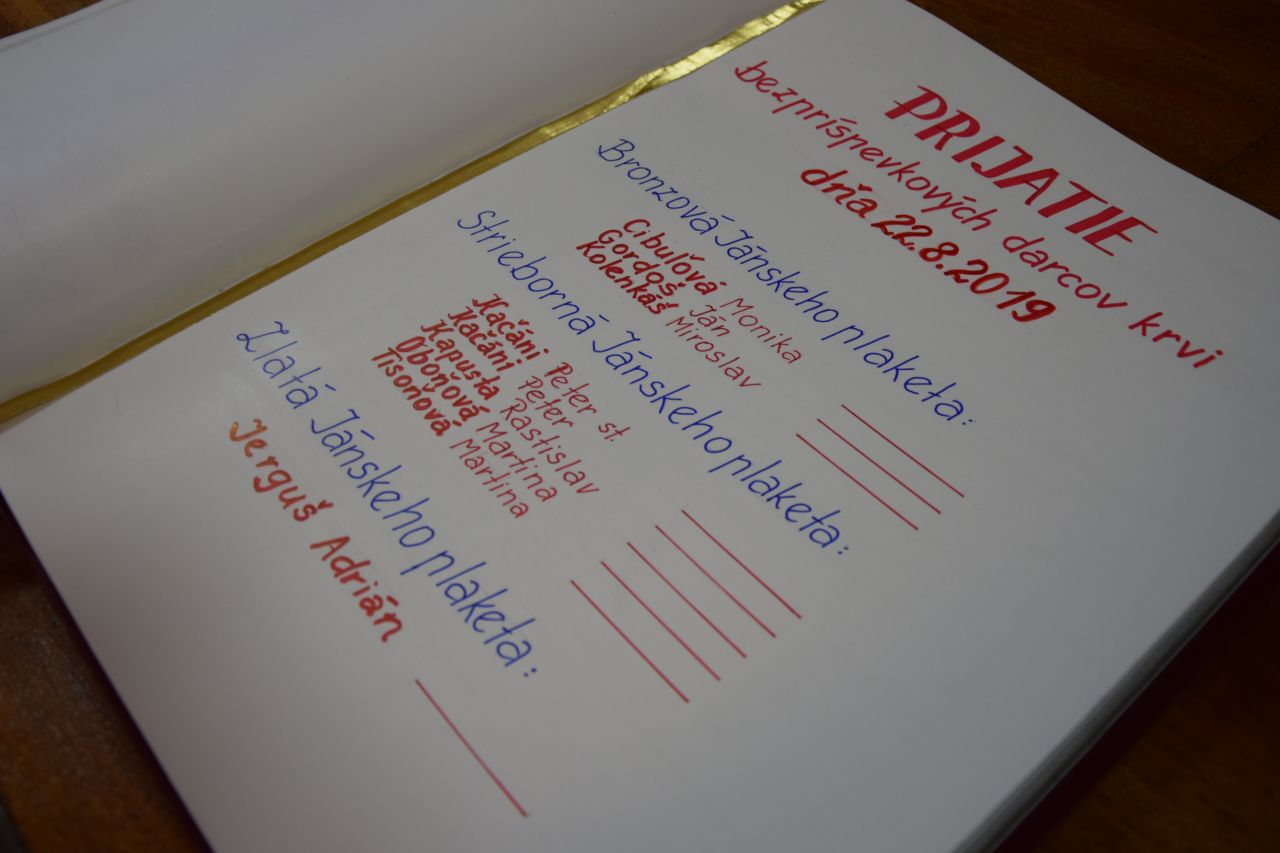 PRIJATIE
bezpríspevkových darcov krvi
dňa 22.8.2019
Bronzová Jánskeho plaketa:
Cibuľová Monika
Gordoš Ján
Kolenkáš Miroslav
Strieborná Jánskeho plaketa:
Kačáni Peter st.
Kačáni Peter
Kapusta Rastislav
Oboňová Martina
Tisoňová Martina
Zlatá Jánskeho plaketa:
Jerguš Adrián